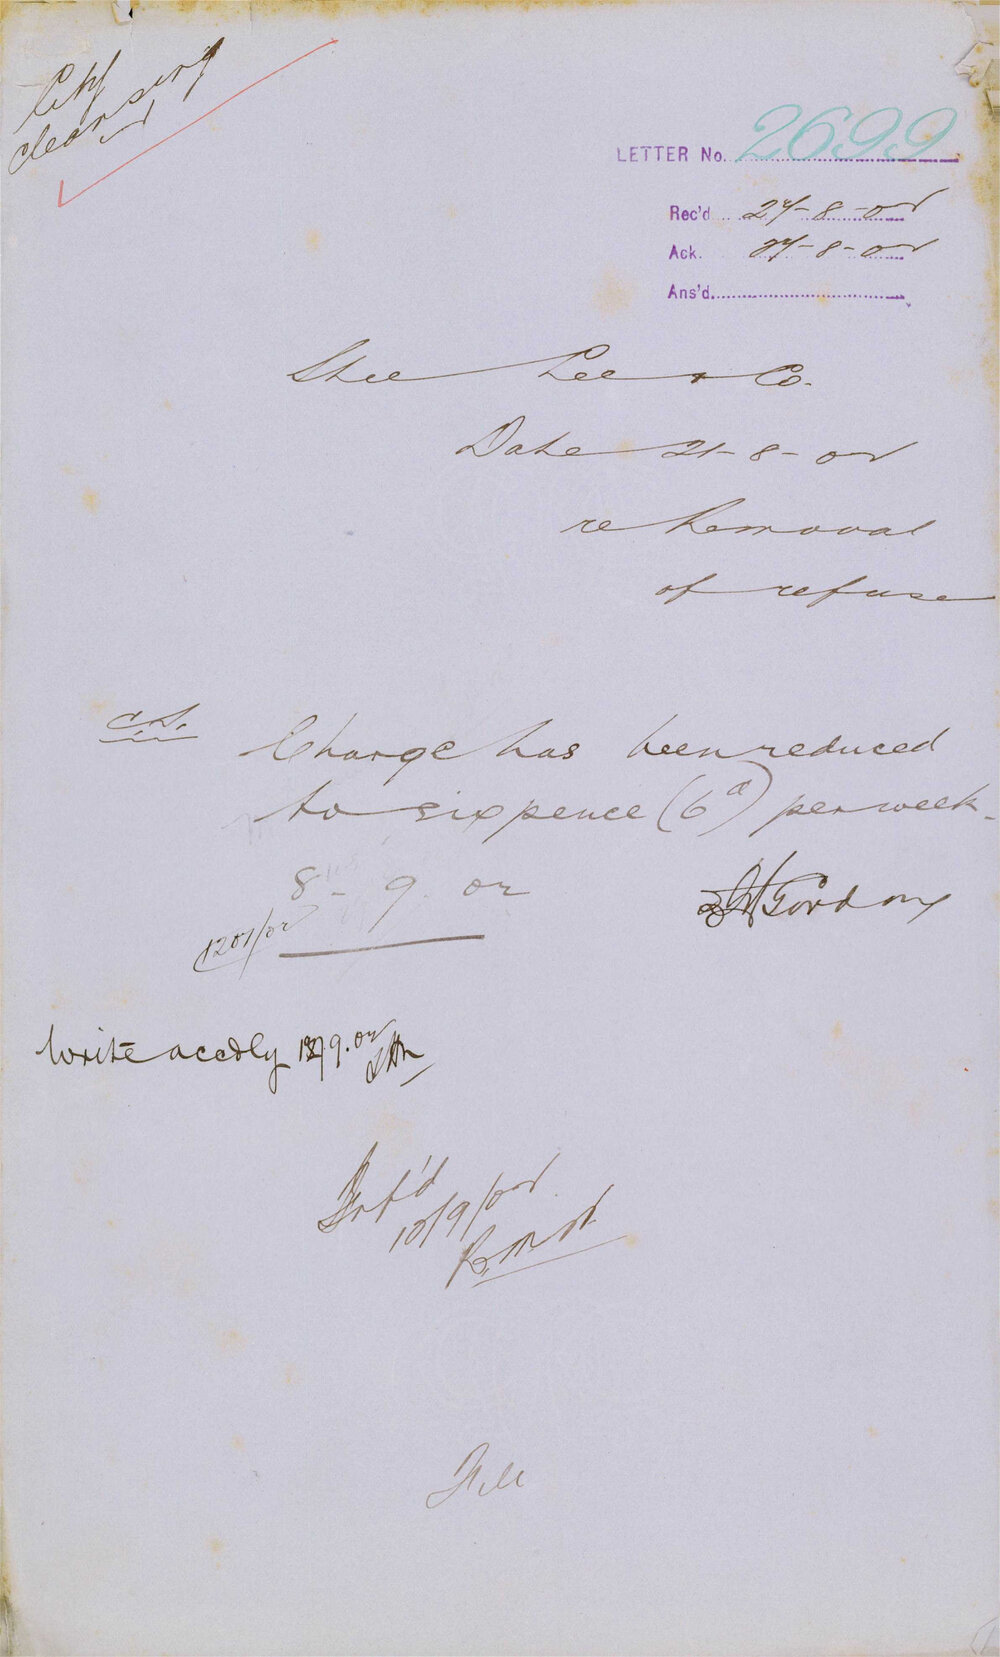 City
cleansing
LETTER No. 2699
Rec'd 27-8-02
Ack. 27-8-02
Ans'd.
Shee Lee & Co.
Date 21-8-02
re Removal
of refuse
C.S. Charge has been reduced
to sixpence (6d) per week.
8-9 02
Gordon
1201/02
Write accdly 9.02
10/9/02
File